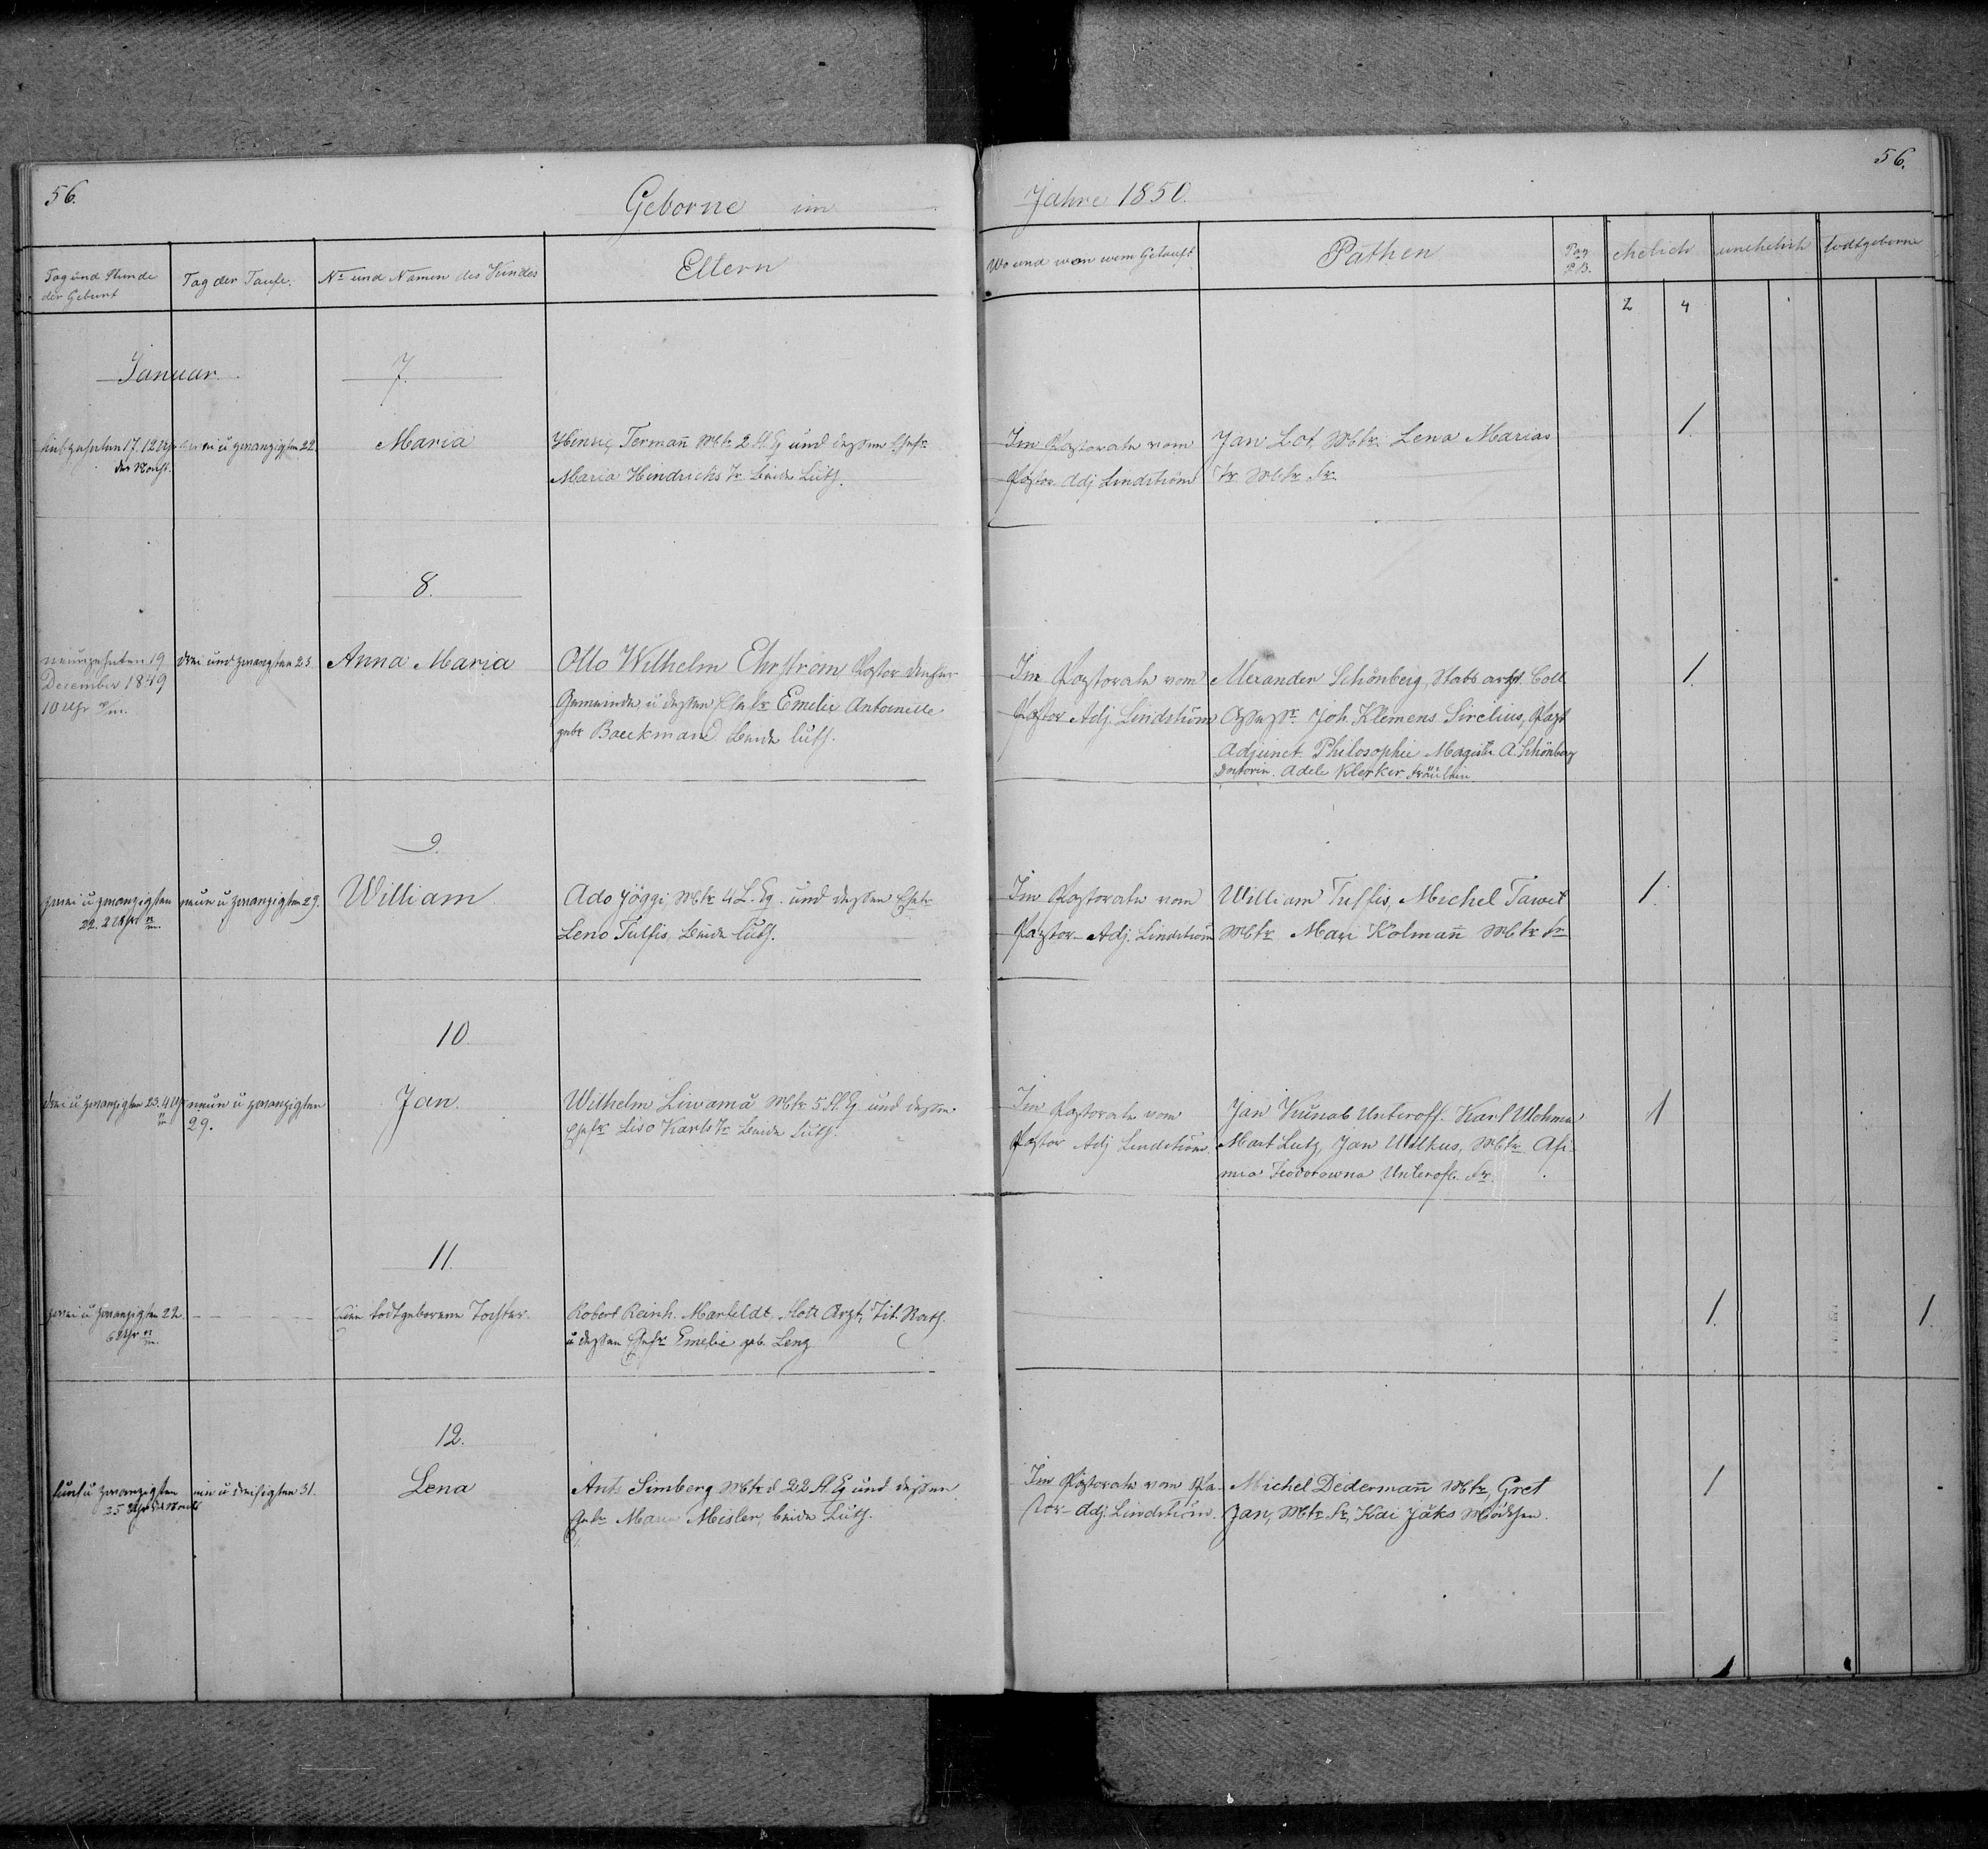 56.
Geborne im
Jahre 1850.
56.
Tag und Stunde
der Geburt
Tag der Taufe.
No und Namen des Kindes
Eltern
Wo und von wem Getauft
Pathen
Pag
P.B.
ehelich
unehelich
todtgeborne
2 4
Januar.
7.
17. 12 Uhr
des Nachts.
zwei u zwanzigsten 22.
Maria
Hinric Terman̄ Mtr. 2 Fl. Eq und dessen Ehefr
Maria Hindricks Tr. beide Luth.
Im Pastorate vom
Pastor Adj Lindström
Jan Lot, Mtr. Lena Marias
Tr Mtr Fr.
1.
8.
neunzehnten 19
December 1849
10 Uhr
drei und zwanzigsten 23
Anna Maria
Otto Wilhelm Ehrström Pastor dieser
Gemeinde u dessen Ehefr Emelie Antoinette
gebr Baeckman beide luth.
Im Pastorate vom
Pastor Adj. Lindström
Alexander Schönberg, Stabsarzt. Coll
Assessr. Joh. Klemens Sirelius, Past
Adjunct. Philosophie Magistr A. Schönberg
Doctorin. Adele Klerker Fräulein
1.
9.
zwei u zwanzigsten
22. 2 Uhr n
m.
neun u zwanzigsten 29.
William
Ado Jöggi, Mtr. 4 L. Eq. und dessen Ehefr
Leno Tulfis, beide luth.
Im Pastorate vom
Pastor-Adj. Lindström
William Tuffis, Michel Tawet
Mtr Mari Kolman̄ Mtr Fr
1.
10
drei u zwanzigsten 23. 4 Uhr
n
m.
neun u zwanzigsten
29.
Jan.
Wilhelm Liwamä Mtr. 5 Fl. Eq und dessen
Ehefr Liso Karls Tr. beide luth.
Im Pastorate vom
Pastor Adj Lindström.
Jan Kunab Unteroff. Karl
Mart Lutz, Jan Wilkus, Mtr. Afi-
mia Feodorowna Unteroff. Fr.
1
11.
zwei u zwanzigsten 22.
6 Uhr n
m.
Eine todtgeborene Tochter.
Robert Reinh. Marfeldt, Flott Arzt, Tit. Rath.
u dessen Ehefr Emelie geb. Lenz
1. 1.
12.
fünf u zwanzigsten
25
ein u dreisigsten 31.
Lena
Ants Simberg Mtr d 22 Fl. Eq und dessen
Ehefr Maria Meisler, beide Luth.
Im Pastorate vom Pa-
stor-Adj. Lindström.
Michel Dedermann̄ Mtr, Gret
Jan, Mtr. Fr, Kai Jäks Mädchen.
1